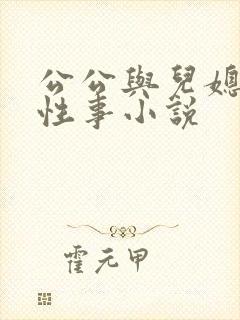 公公與兒媳
性事小說
霍元甲